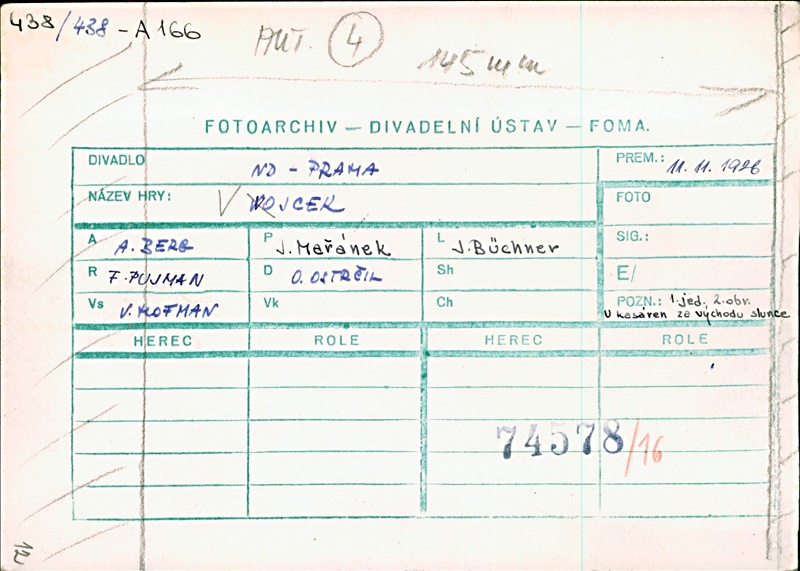 438/438-A 166
ANT. 4
145 mm
FOTOARCHIV — DIVADELNÍ ÚSTAV — FOMA.
DIVADLO ND - PRAHA
PREM.: 11. 11. 1926
NÁZEV HRY: V WOJCEK
FOTO
A A. BERG
P J. Mařánek
L J. Büchner
SIG.:
R F. PUJMAN
D O. OSTRČIL
Sh
E/
Vs V. HOFMAN
Vk
Ch
POZN.: 1. jed, 2. obr.
U kasáren za východu slunce
HEREC ROLE HEREC ROLE
74578/16
12